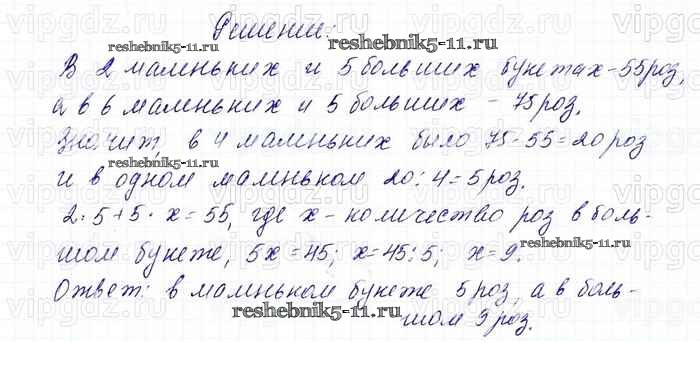 Решение:
В 2 маленьких и 5 больших букетах - 55 роз,
а в 6 маленьких и 5 больших - 75 роз.
Значит, в 4 маленьких было 75 - 55 = 20 роз
и в одном маленьком 20 : 4 = 5 роз.
2 · 5 + 5 · x = 55, где x - количество роз в боль-
шом букете, 5x = 45; x = 45 : 5; x = 9.
Ответ: в маленьком букете 5 роз, а в боль-
шом 9 роз.
reshebnik5-11.ru
reshebnik5-11.ru
reshebnik5-11.ru
reshebnik5-11.ru
reshebnik5-11.ru
vipgdz.ru